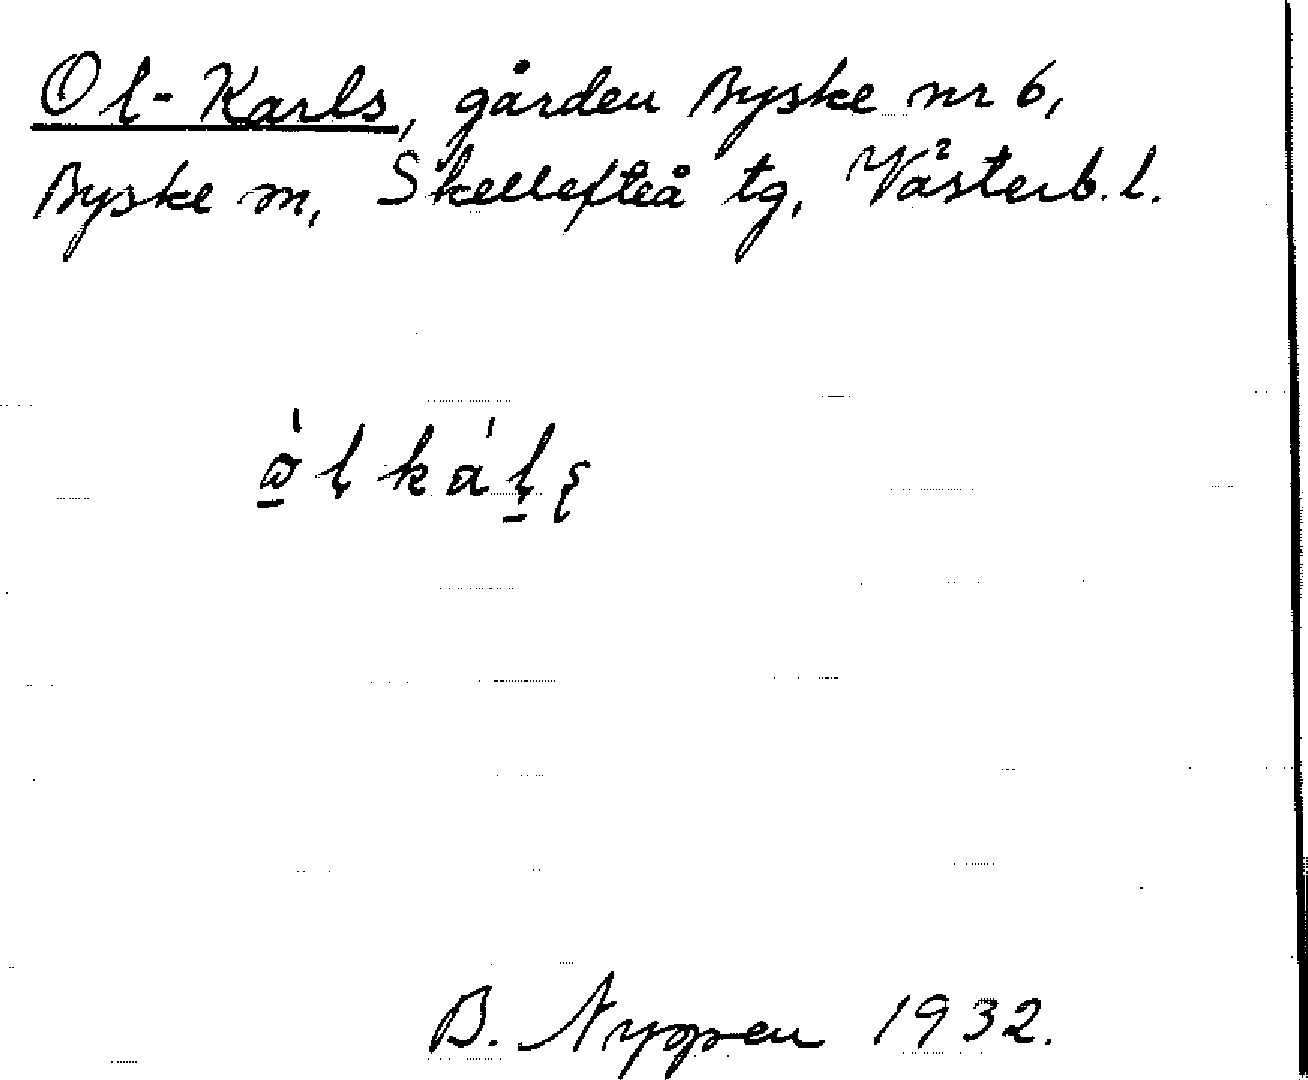 Ol-Karls, gården Byske nr 6,
Byske sn, Skellefteå tg, Västerb. l.
B. Nyppen 1932.